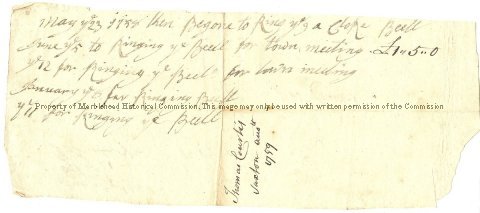 May ye 23 1758 then Begone to Ring ye 9 a Clock Bell
June ye 5 to Ringing ye Beell for town meeting £1"5"0
ye 12 for Ringing ye Beell for town meeting
January ye for Ringing Beell
Property of Marblehead Historical Commission. This image may only be used with written permission of the Commission
ye 11 for Ringing ye Beell
Thomas Courtis
Saxton
1759